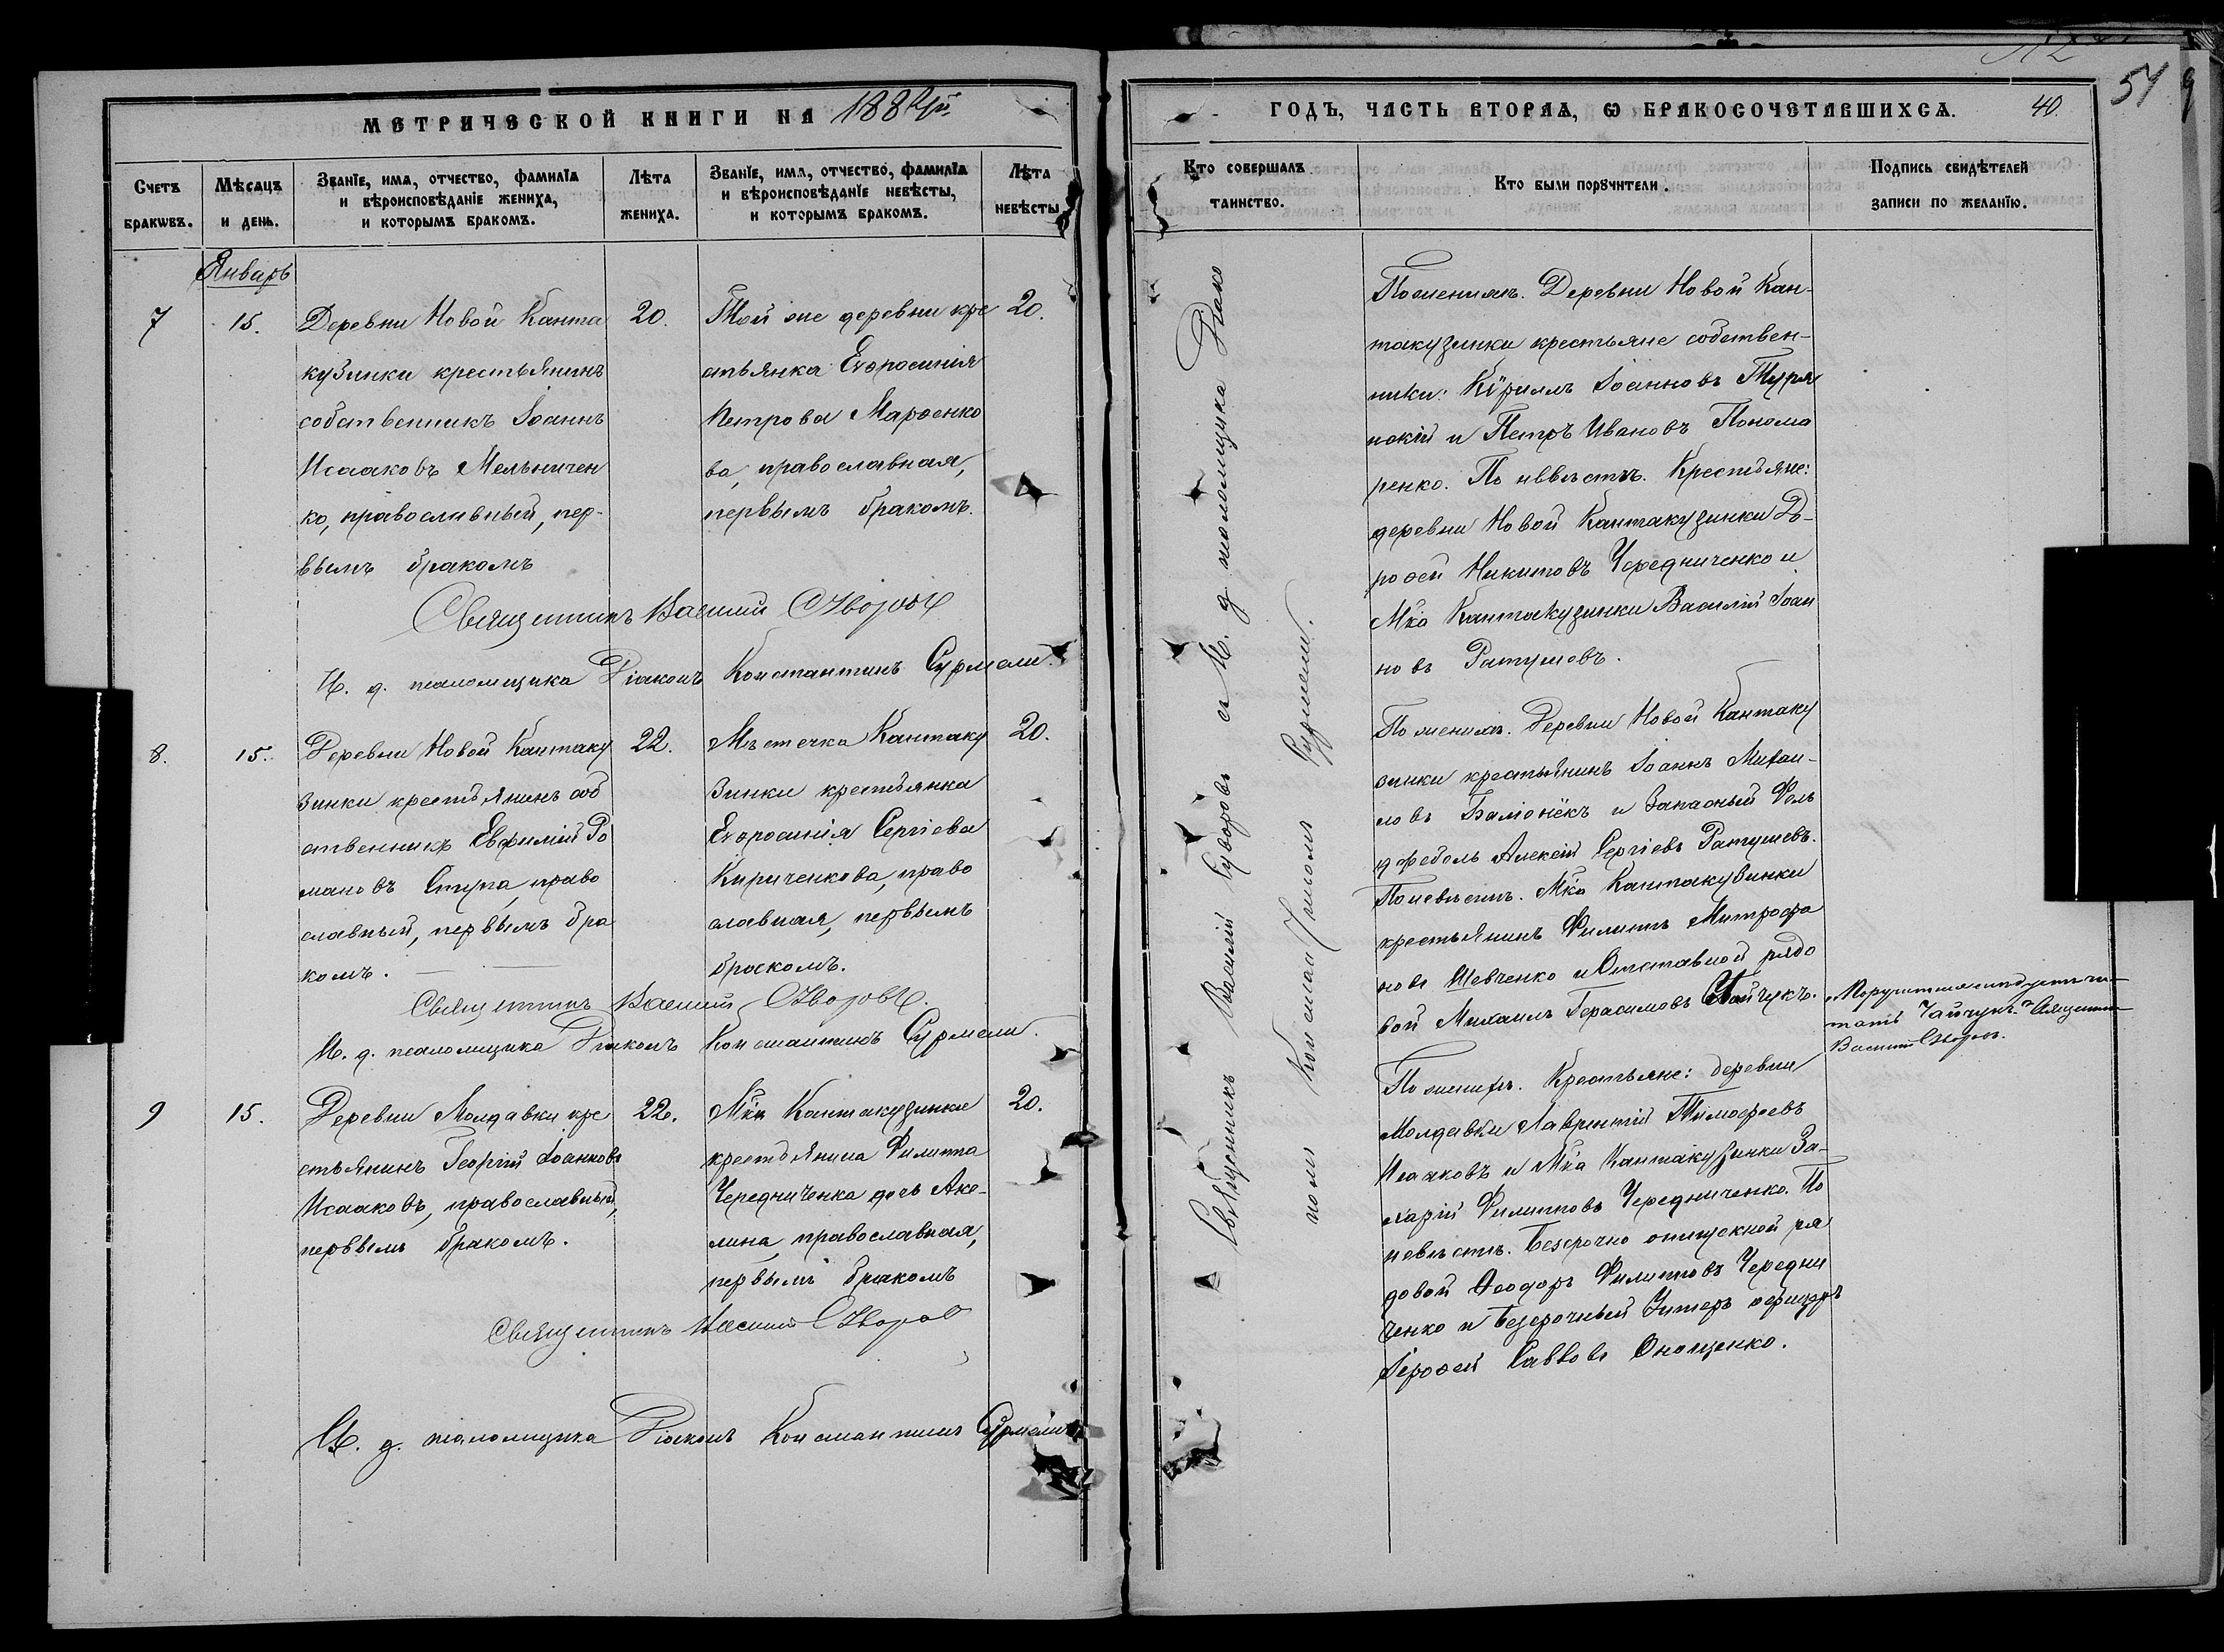 МЕТРИЧЕСКОЙ КНИГИ НА 1882й
Счетъ браковъ.
Мѣсяцъ и день.
Званїе, имя, отчество, фамилїя
и вѣроисповѣданїе жениха,
и которымъ бракомъ.
Лѣта
жениха.
Званїе, имя, отчество, фамилїя
и вѣроисповѣданїе невѣсты,
и которымъ бракомъ.
Лѣта
невѣсты
Январь
7
15.
Деревни Новой Канта
кузинки крестьянинъ
собственникъ Іоаннъ
Исааковъ Мельничен
ко, православный, пер-
вымъ бракомъ
20.
Той же деревни кре
стьянка Евѳросинія
Петрова Марѳенко
ва, православная,
первымъ бракомъ.
20.
Священникъ Василій Суворовъ
И. д. псаломщика Діаконъ Константинъ Сурмели.
8.
15.
Деревни Новой Кантаку
зинки крестьянинъ соб
ственникъ Евфимій Ро
мановъ Ступа, право
славный, первымъ бра
комъ.
22.
Мѣстечка Кантаку
зинки крестьянка
Евѳросинія Сергіева
Кириченкова, право
славная, первымъ
бракомъ.
20.
Священникъ Василій Суворовъ.
И. д. псаломщика Діаконъ Константинъ Сурмели.
9
15.
Деревни Молдавки кре
стьянинъ Георгій Іоанновъ
Исааковъ, православный,
первымъ бракомъ.
22.
Мка Кантакузинки
крестьянина Филиппа
Чередниченка дочь Аке-
лина, православная,
первымъ бракомъ
20.
Священникъ Василій Суворовъ
И. д. псаломщика Діаконъ Константинъ Сурмели
ГОДЪ, ЧАСТЬ ВТОРАЯ, Ѡ БРАКОСОЧЕТАВШИХСЯ.
40.
54
9
Кто совершалъ
таинство.
Кто были порꙋчители.
Подпись свидѣтелей
записи по желанїю.
Священникъ Василій Суворовъ съ И. д. псаломщика Діако
номъ Константиномъ Сурмели.
По женихѣ. Деревни Новой Кан-
такузинки крестьяне собствен-
ники: Кѵриллъ Іоанновъ Туря
нскій и Петръ Ивановъ Понома
ренко. По невѣстѣ. Крестьяне:
деревни Новой Кантакузинки До-
роѳей Никитовъ Чередниченко и
Мка Кантакузинки Василій Іоан
новъ Ратушевъ.
По женихѣ. Деревни Новой Кантаку
зинки крестьянинъ Іоаннъ Михаи-
ловъ Балюнёкъ и Запасный Фель
дфебель Алексій Сергіевъ Ратушевъ.
По невѣстѣ. Мка Кантакузинки
крестьянинъ Филиппъ Митрофа
новъ Шевченко и Отставной рядо
вой Михаилъ Герасимовъ Чайчукъ.
По женихѣ. Крестьяне: деревни
Молдавки Лаврентій Тимофеевъ
Исааковъ и Мка Кантакузинки За-
харій Филипповъ Чередниченко. По
невѣстѣ. Безсрочно отпускной ря
довой Ѳеодоръ Филипповъ Чередни
ченко и безсрочный Унтеръ офицеръ
Іероѳей Саввовъ Онощенко.
читать
тать Чайчукъ. Священникъ
Василій Суворовъ.